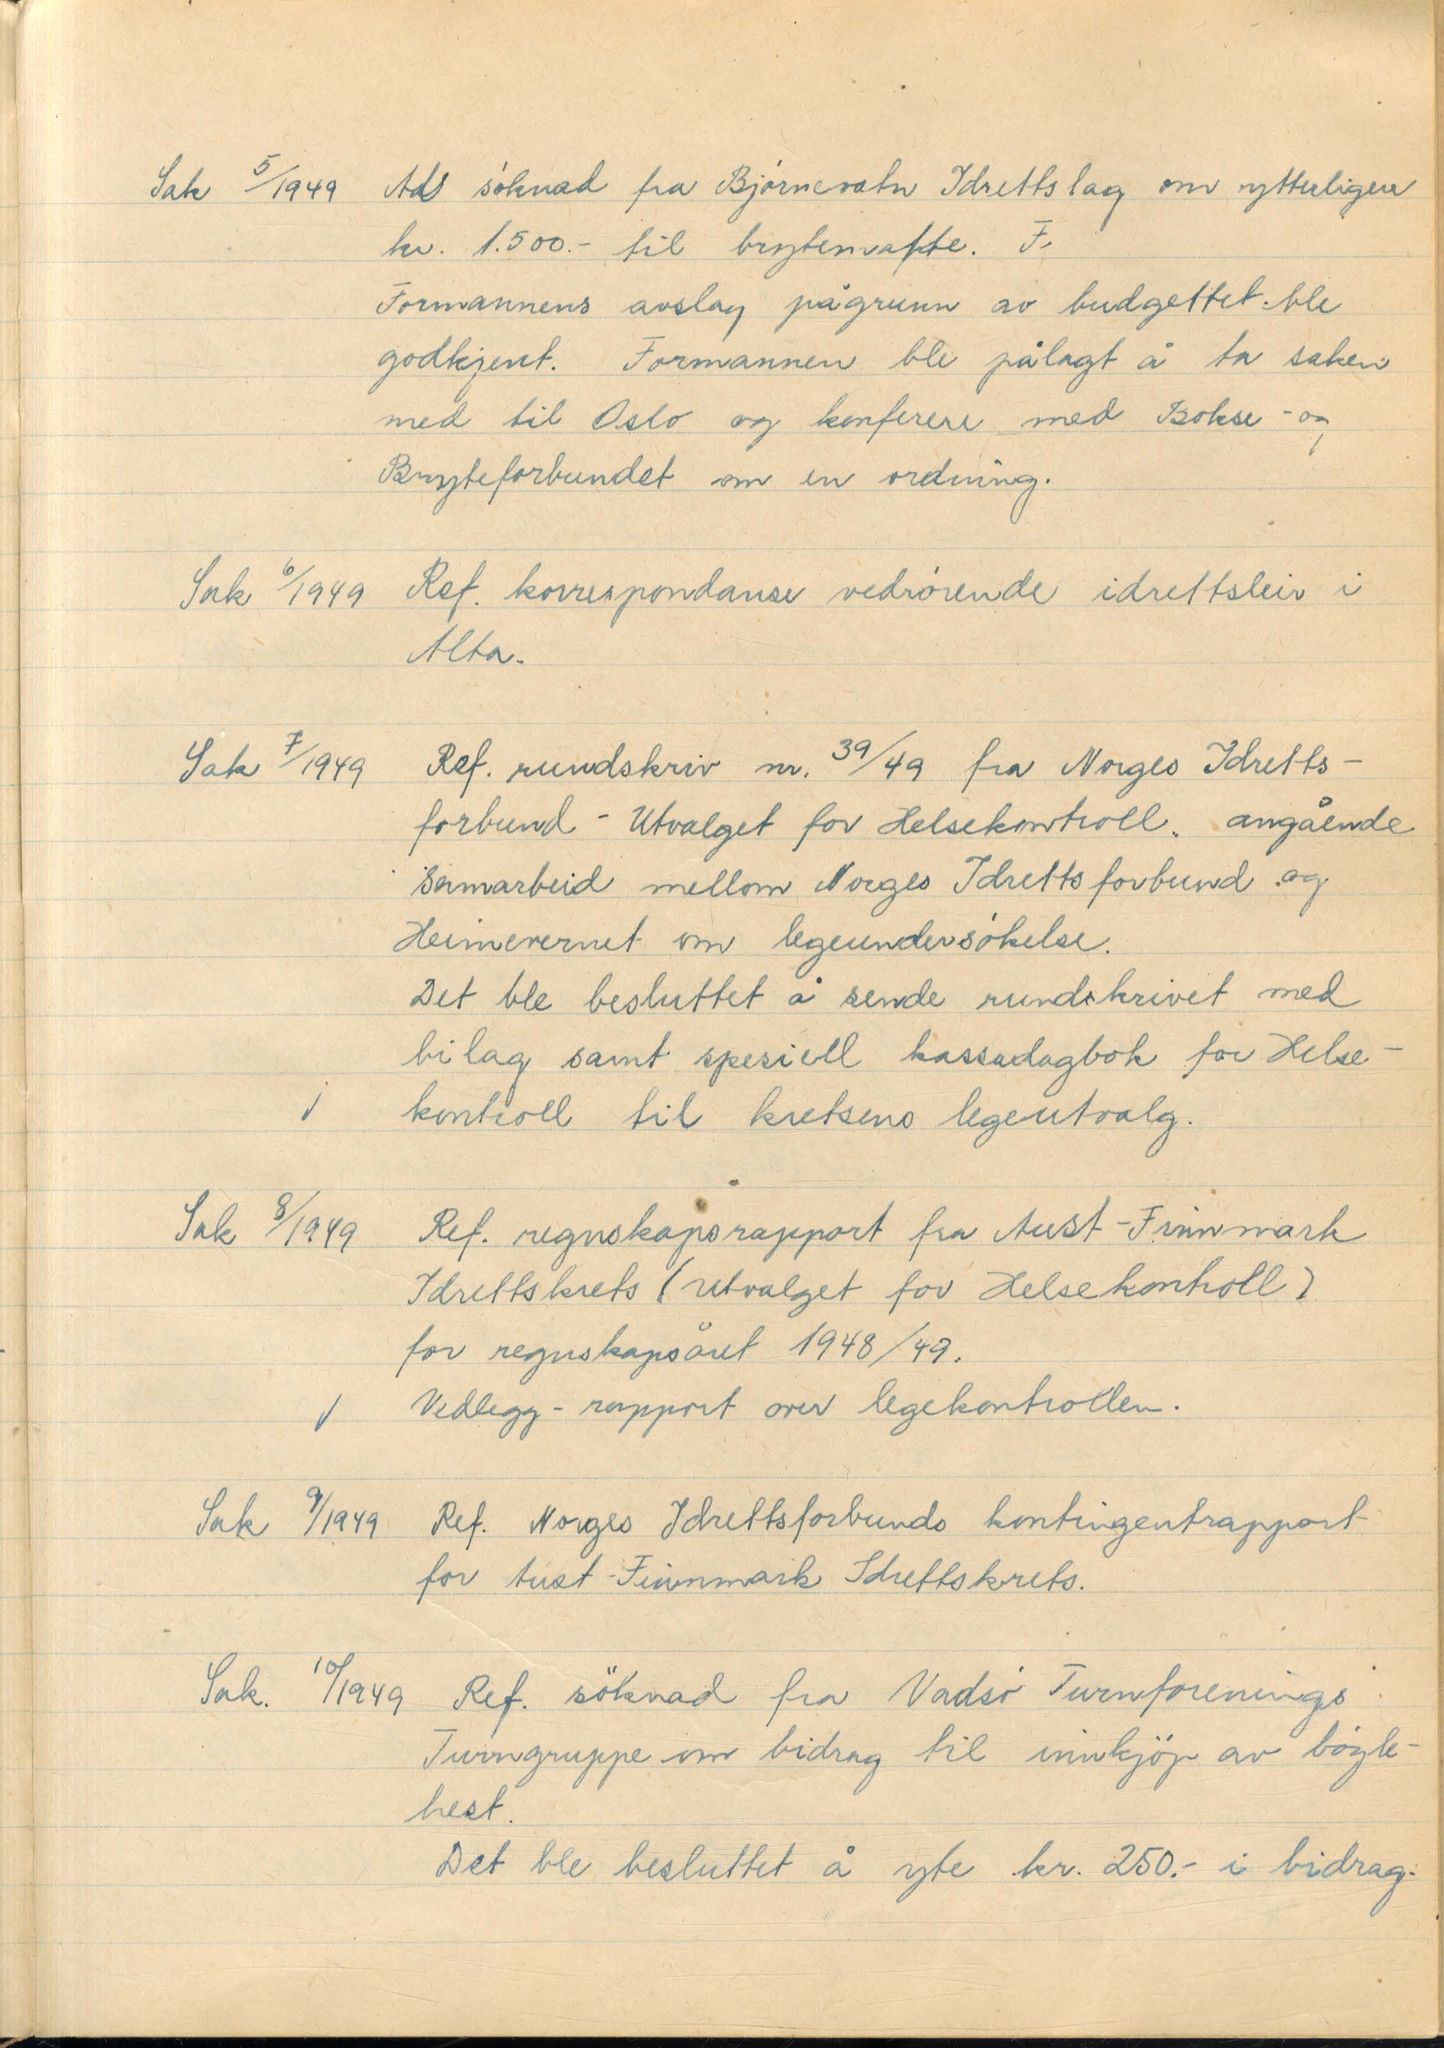 Sak 5/1949 Ads søknad fra Bjørnevatn Idrettslag om ytterligere
kr. 1.500.- til brytematte. F.
Formannens avslag pågrunn av budgettet ble
godkjent. Formannen ble pålagt å ta saken
med til Oslo og konferere med Bokse- og
Bryteforbundet om en ordning.
Sak 6/1949 Ref. korrespondanse vedrørende idrettsleir i
Alta.
Sak 7/1949 Ref. rundskriv nr. 39/49 fra Norges Idretts-
forbund - Utvalget for Helsekontroll. angående
samarbeid mellom Norges Idrettsforbund og
Heimevernet om legeundersøkelse.
Det ble besluttet å sende rundskrivet med
bilag samt spesiell kassadagbok for Helse-
√ kontroll til kretsens legeutvalg.
Sak 8/1949 Ref. regnskapsrapport fra Aust-Finnmark
Idrettskrets (utvalget for Helsekontroll)
for regnskapsåret 1948/49.
√ Vedlegg - rapport over legekontrollen.
Sak 9/1949 Ref. Norges Idrettsforbunds kontingentrapport
for Aust-Finnmark Idrettskrets.
Sak. 10/1949 Ref. söknad fra Vadsø Turnforenings
Turngruppe om bidrag til innkjöp av bøyle-
hest.
Det ble besluttet å yte kr. 250.- i bidrag.